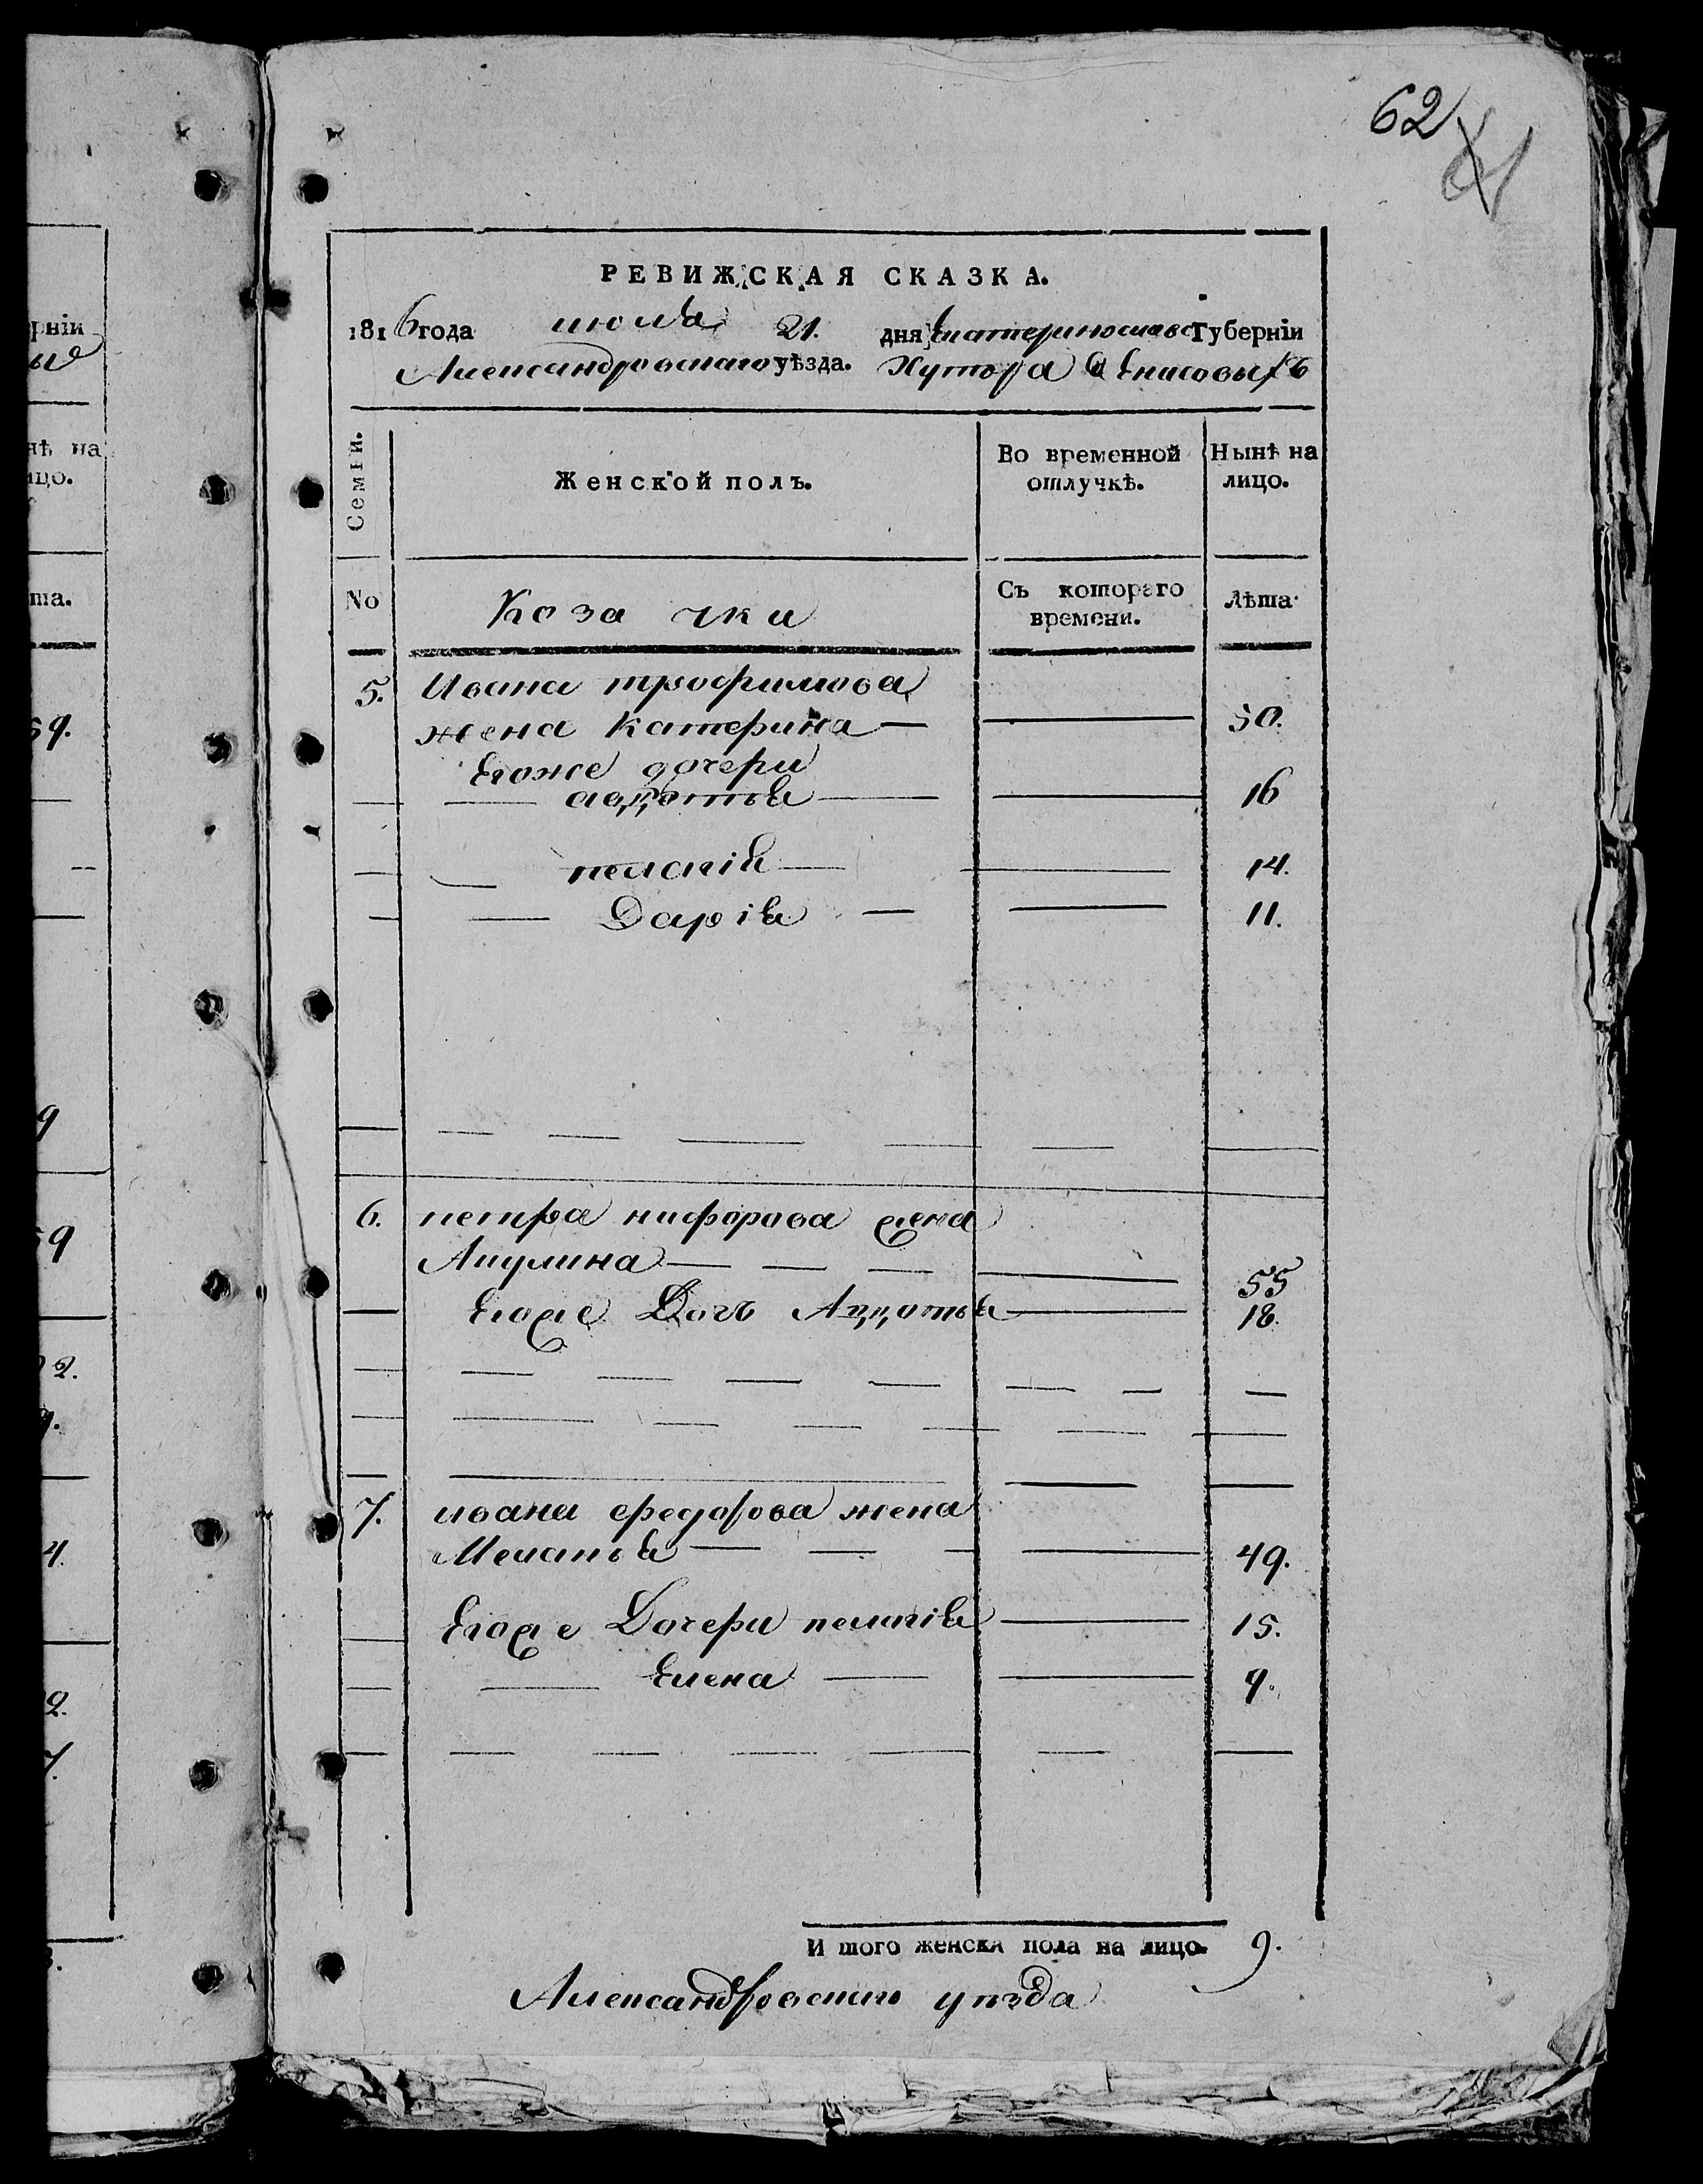 62
РЕВИЖСКАЯ СКАЗКА.
1816 года июля 21. дня Екатеринославс Губернiи
Александровскаго уѣзда. Хутора
Семьи. Женской полъ. Во временной отлучкѣ. Нынѣ на лицо.
No Коза чки Съ котораго времени. Лѣта
5. Ивана трофимова
жена Катерина — — 50.
Егоже дочери
— — авдотья — — 16
— — пелагiя — — 14.
— — Дарiя — — 11.
6. петра никфорова жена
Акулина — — — — 55
— Егоже Дочь Авдотья — 18.
7. ивана федорова жена
Меланья — — — — 49.
— Егоже Дочери пелагiя — 15.
— — Елена — — 9.
И того женска пола на лицо. 9.
Александровскаго уѣзда
рнiи
ые
нѣ на
ицо.
та.
59.
9
59
2.
9.
4.
2.
7.
3.